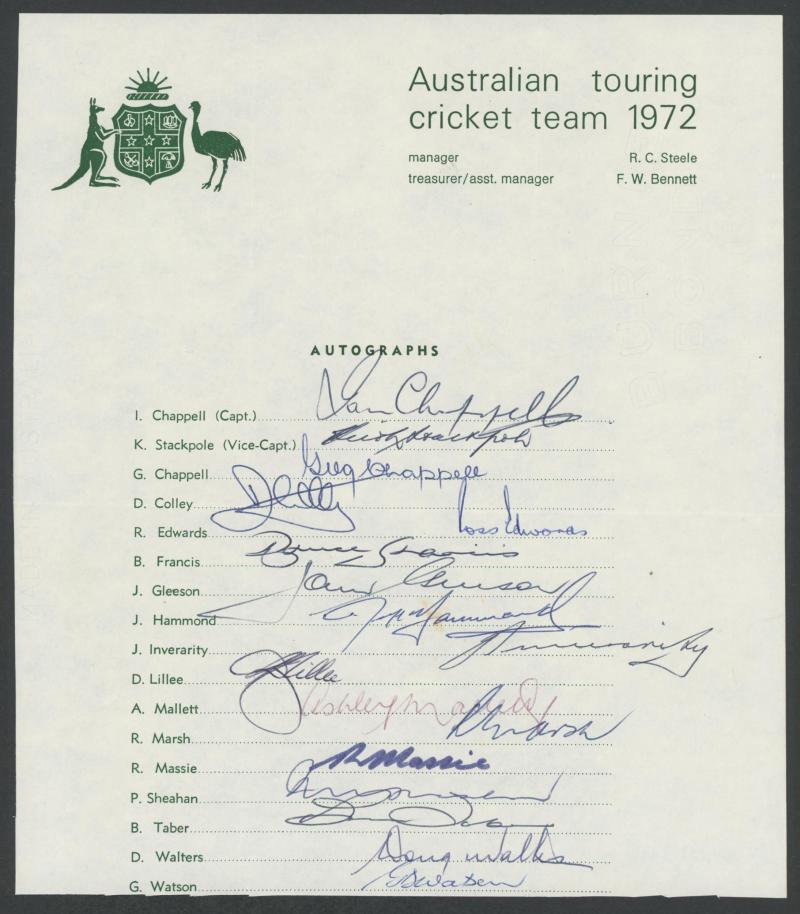 Australian touring
cricket team 1972
manager R. C. Steele
treasurer/asst. manager F. W. Bennett
AUTOGRAPHS
I. Chappell (Capt.) Ian Chappell
K. Stackpole (Vice-Capt.) Keith Stackpole
G. Chappell Greg Chappell
D. Colley D Colley
R. Edwards Ross Edwards
B. Francis Bruce Francis
J. Gleeson John Gleeson
J. Hammond J R Hammond
J. Inverarity J Inverarity
D. Lillee D Lillee
A. Mallett Ashley Mallett
R. Marsh R Marsh
R. Massie R Massie
P. Sheahan
B. Taber
D. Walters Doug Walters
G. Watson G Watson